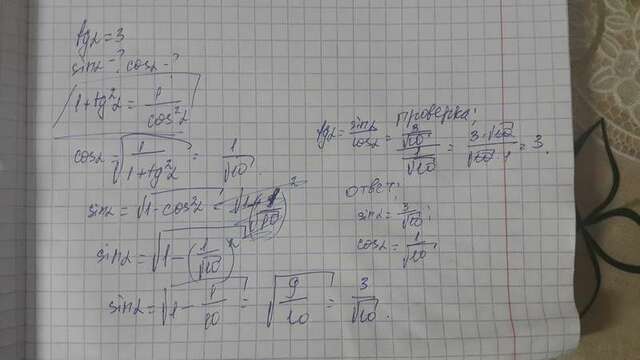 tgα = 3
sinα - ? cosα - ?
1 + tg²α = 1/cos²α
cosα = √(1/(1 + tg²α)) = 1/√10
sinα = √(1 - cos²α) =
sinα = √(1 - (1/√10)²)
sinα = √(1 - 1/10) = √(9/10) = 3/√10.
проверка:
tgα = sinα/cosα = (3/√10)/(1/√10) = (3·√10)/(√10·1) = 3.
ответ:
sinα = 3/√10;
cosα = 1/√10;